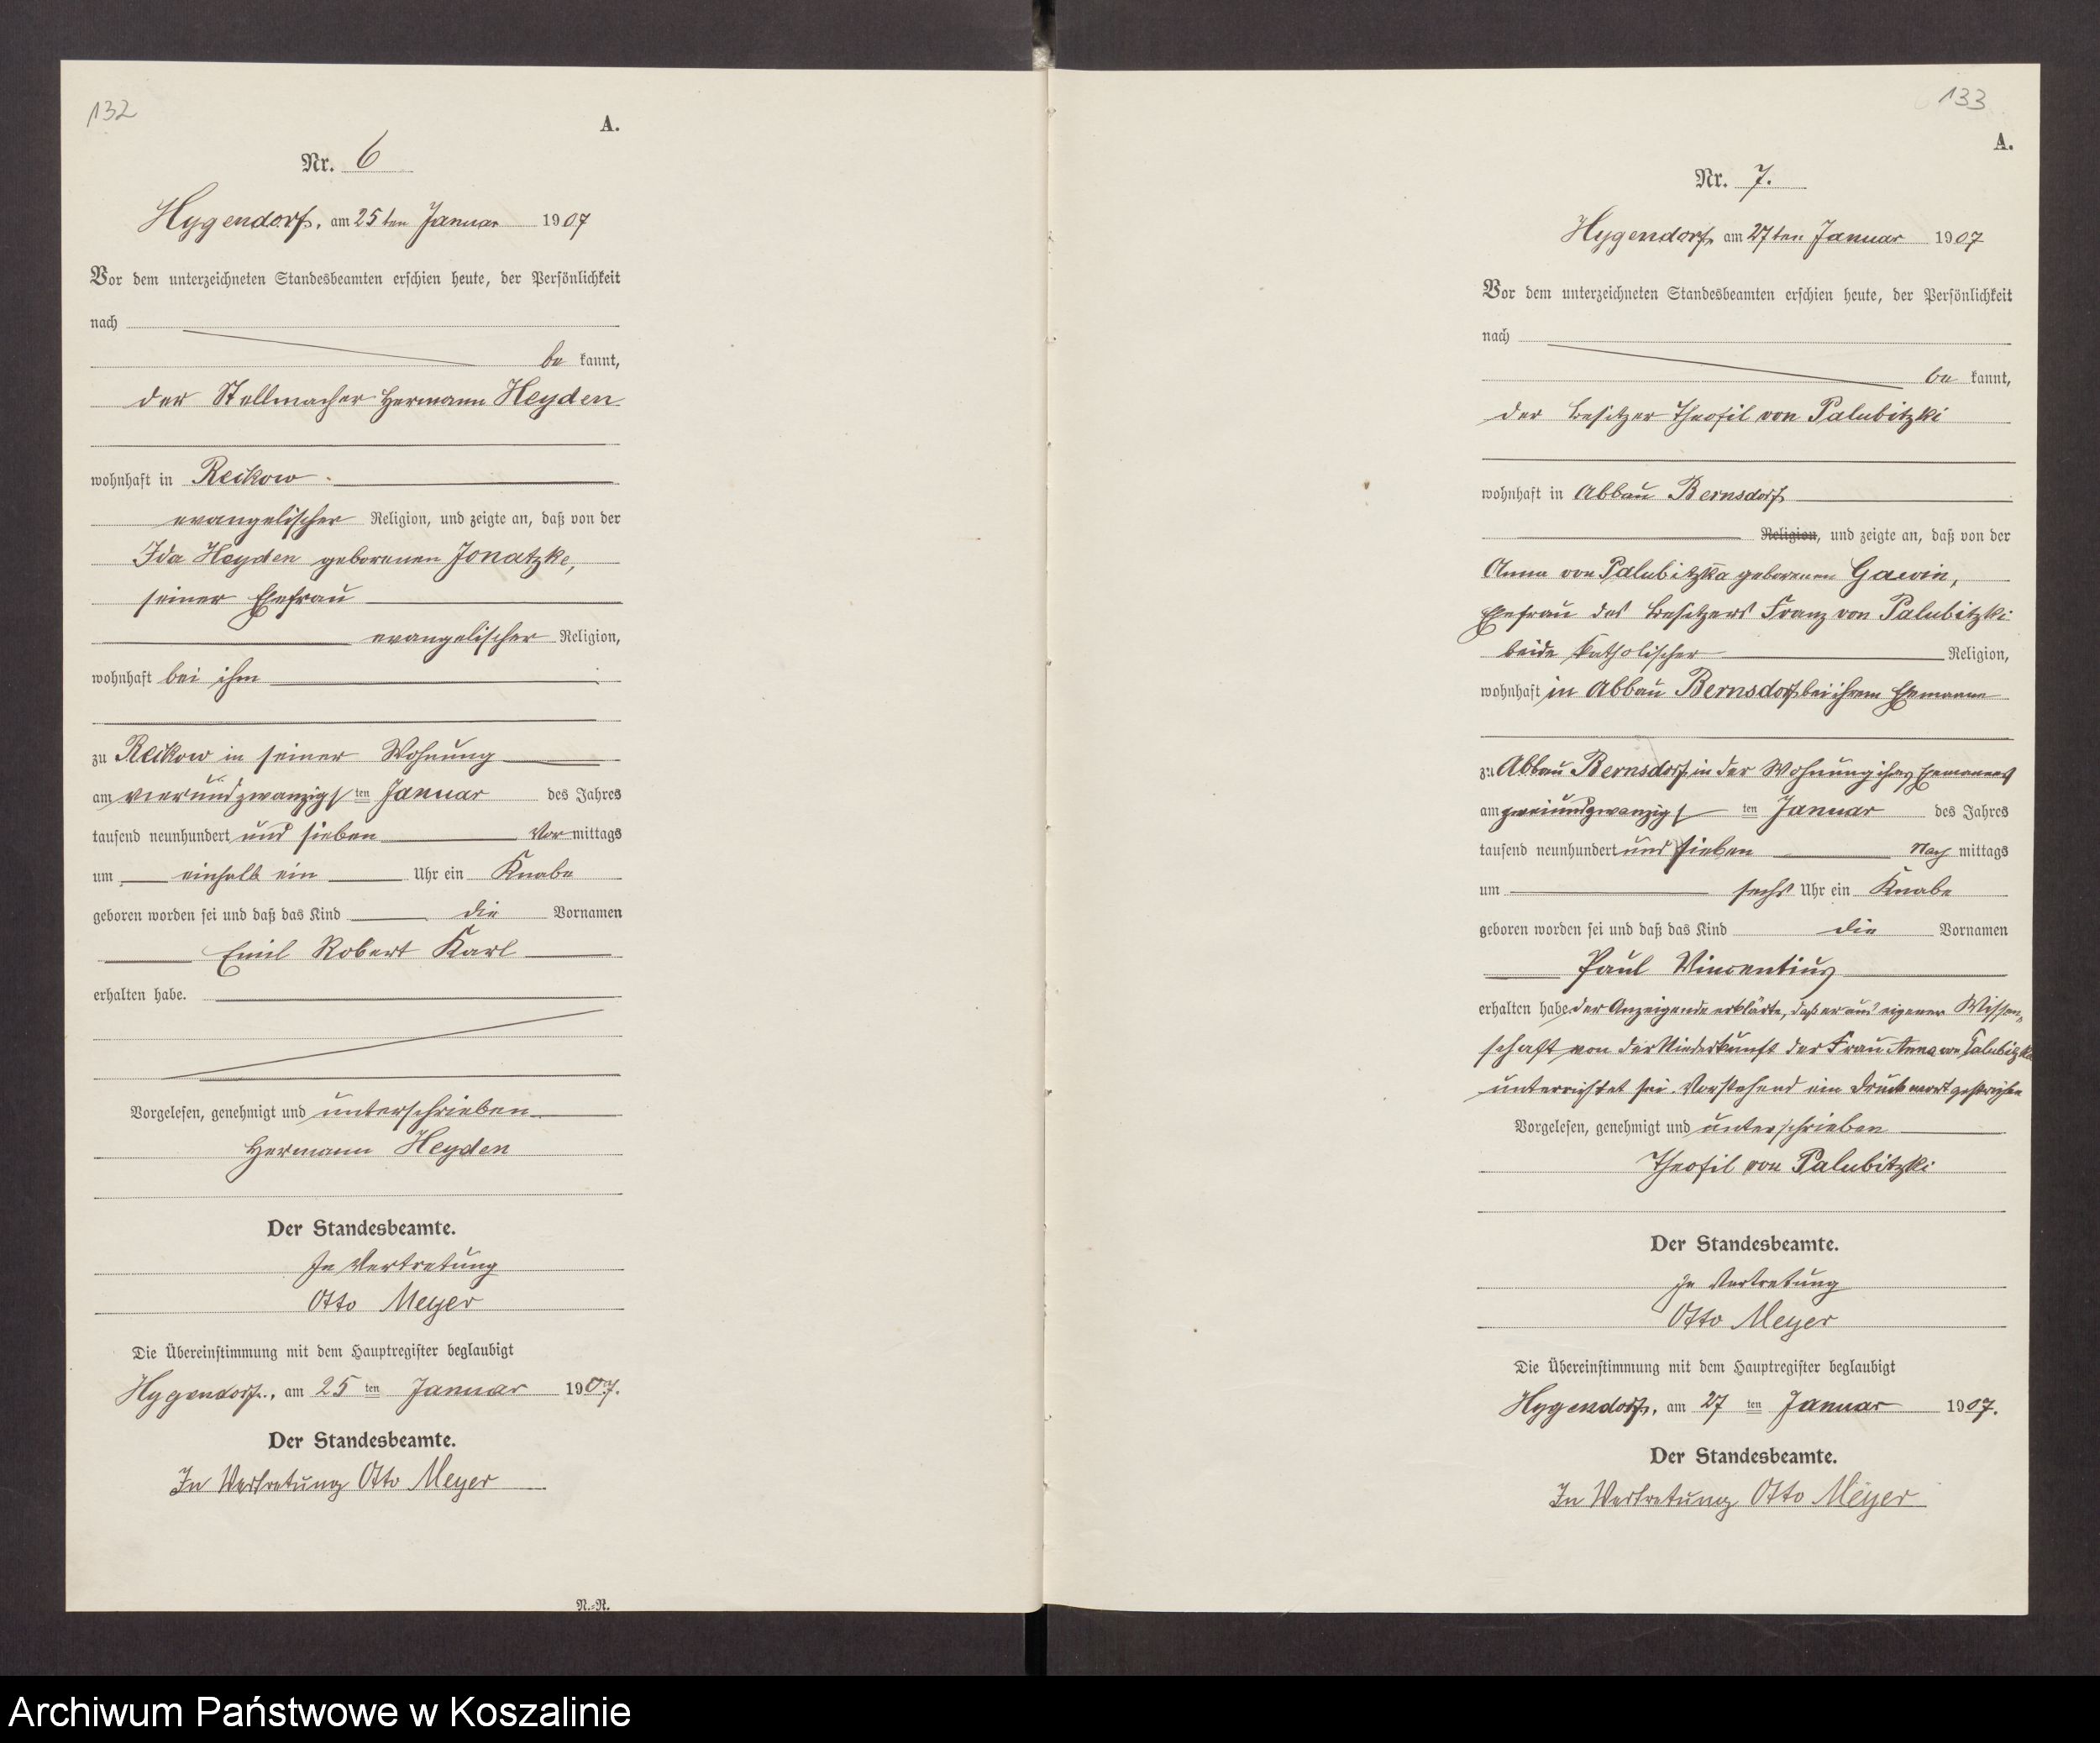 132
A.
Nr. 6
Hygendorf, am 25ten Januar 1907
Vor dem unterzeichneten Standesbeamten erschien heute, der Persönlichkeit
nach
be kannt,
der Stellmacher Hermann Heyden
wohnhaft in Reckow
evangelischer Religion, und zeigte an, daß von der
Ida Heyden geborenen Jonatzke,
seiner Ehefrau
evangelischer Religion,
wohnhaft bei ihm
zu Reckow in seiner Wohnung
am vierundzwanzigsten Januar des Jahres
tausend neunhundert und sieben Vormittags
um einhalb ein Uhr ein Knabe
geboren worden sei und daß das Kind die Vornamen
Emil Robert Karl
erhalten habe.
Vorgelesen, genehmigt und unterschrieben
Hermann Heyden
Der Standesbeamte.
In Vertretung
Otto Meyer
Die Übereinstimmung mit dem Hauptregister beglaubigt
Hygendorf, am 25 ten Januar 1907.
Der Standesbeamte.
In Vertretung Otto Meyer
N.-N.
133
A.
Nr. 7.
Hygendorf, am 27ten Januar 1907
Vor dem unterzeichneten Standesbeamten erschien heute, der Persönlichkeit
nach
be kannt,
der Besitzer Theofil von Palubitzki
wohnhaft in Abbau Bernsdorf
Religion, und zeigte an, daß von der
Anna von Palubitzka geborenen Gawin,
Ehefrau des Besitzers Franz von Palubitzki
beide katholischer Religion,
wohnhaft in Abbau Bernsdorf bei ihrem Ehemanne
zu Abbau Bernsdorf in der Wohnung ihres Ehemannes
am zweiundzwanzigsten Januar des Jahres
tausend neunhundert und sieben Nachmittags
um sechs Uhr ein Knabe
geboren worden sei und daß das Kind die Vornamen
Paul Vincentius
erhalten habe. der Anzeigende erklärte, daß er aus eigener Wissen-
schaft von der Niederkunft der Frau Anna von Palubitzka
unterrichtet sei. Vorstehend ein Druckwort gestrichen
Vorgelesen, genehmigt und unterschrieben
Theofil von Palubitzki
Der Standesbeamte.
In Vertretung
Otto Meyer
Die Übereinstimmung mit dem Hauptregister beglaubigt
Hygendorf, am 27 ten Januar 1907.
Der Standesbeamte.
In Vertretung Otto Meyer
Archiwum Państwowe w Koszalinie